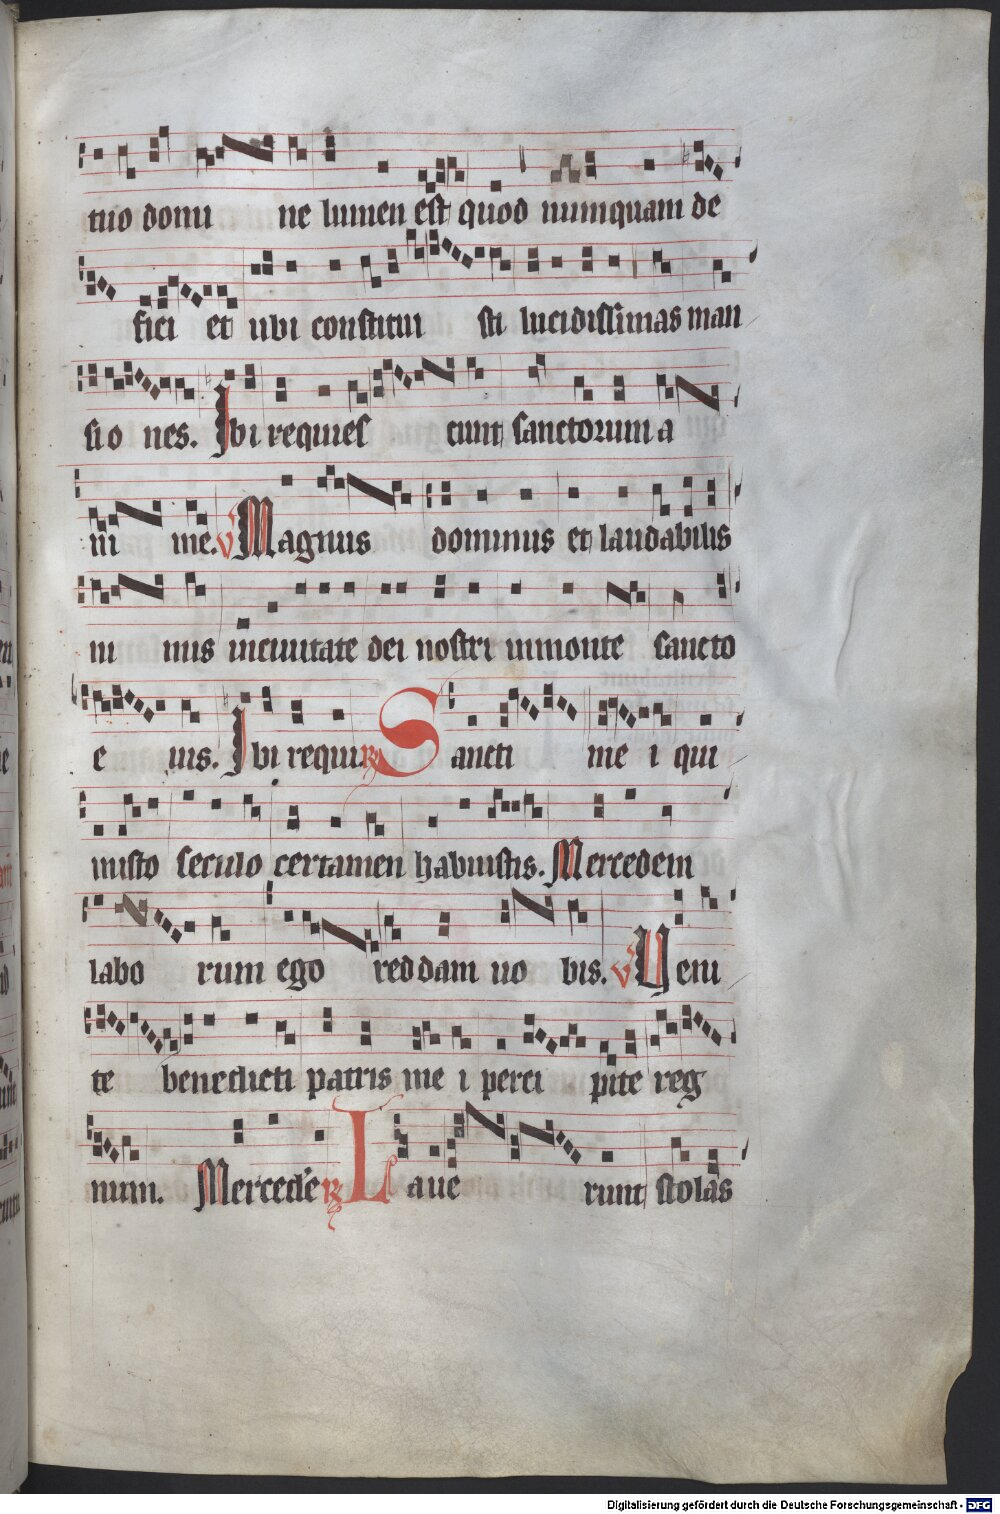 tuo domi ne lumen est quod nunquam de
fici et ubi constitui sti lucidissimas man
sio nes. Ibi requies cunt sanctorum a
ni me. V Magnus dominus et laudabilis
ni mis in civitate dei nostri in monte sancto
e ius. Ibi requi. R Sancti me i qui
in isto seculo certamen habuistis. Mercedem
labo rum ego reddam vo bis. V Veni
te benedicti patris me i perci pite reg
num. Mercedē R Laue runt stolas
Digitalisierung gefördert durch die Deutsche Forschungsgemeinschaft - DFG